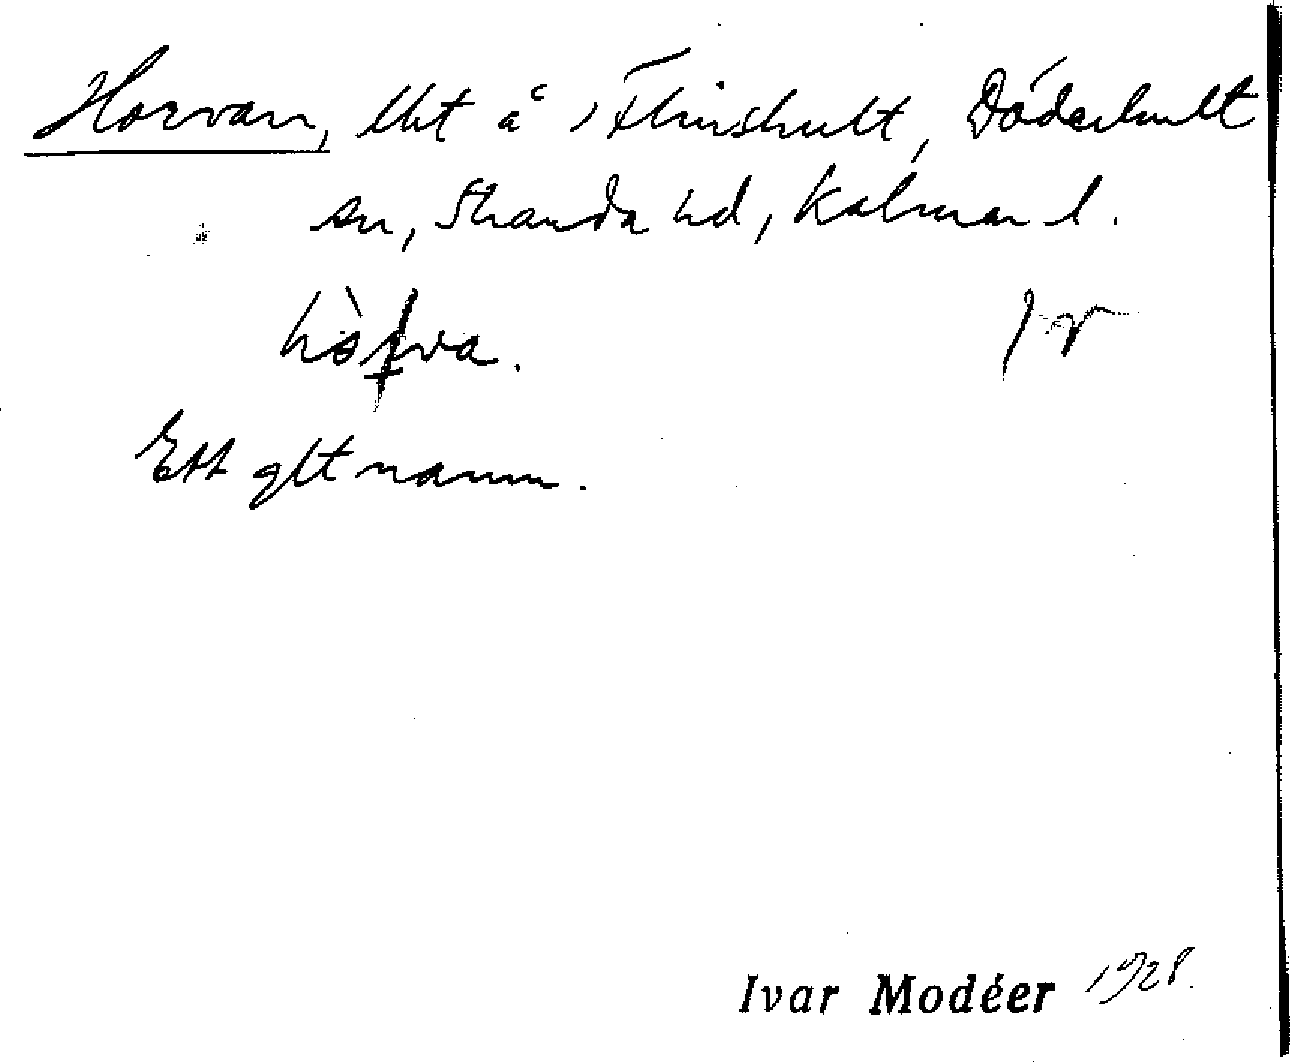 Horvan, lht å Flinshult, Döderhult
sn, Stranda hd, Kalmar l.
Ett glt namn.
Ivar Modéer 1928.